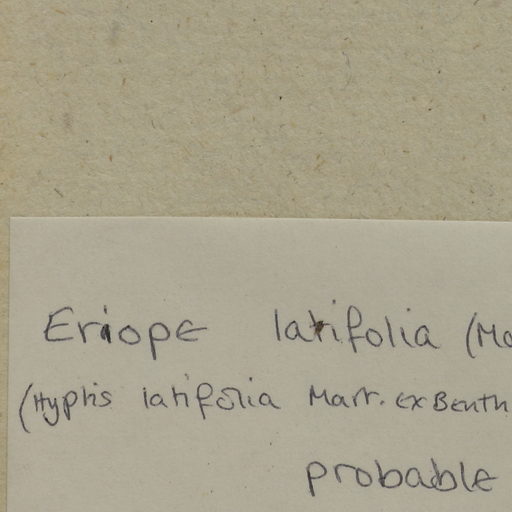 Eriope latifolia (Ma
(Hyptis latifolia Mart. ex Benth
probable